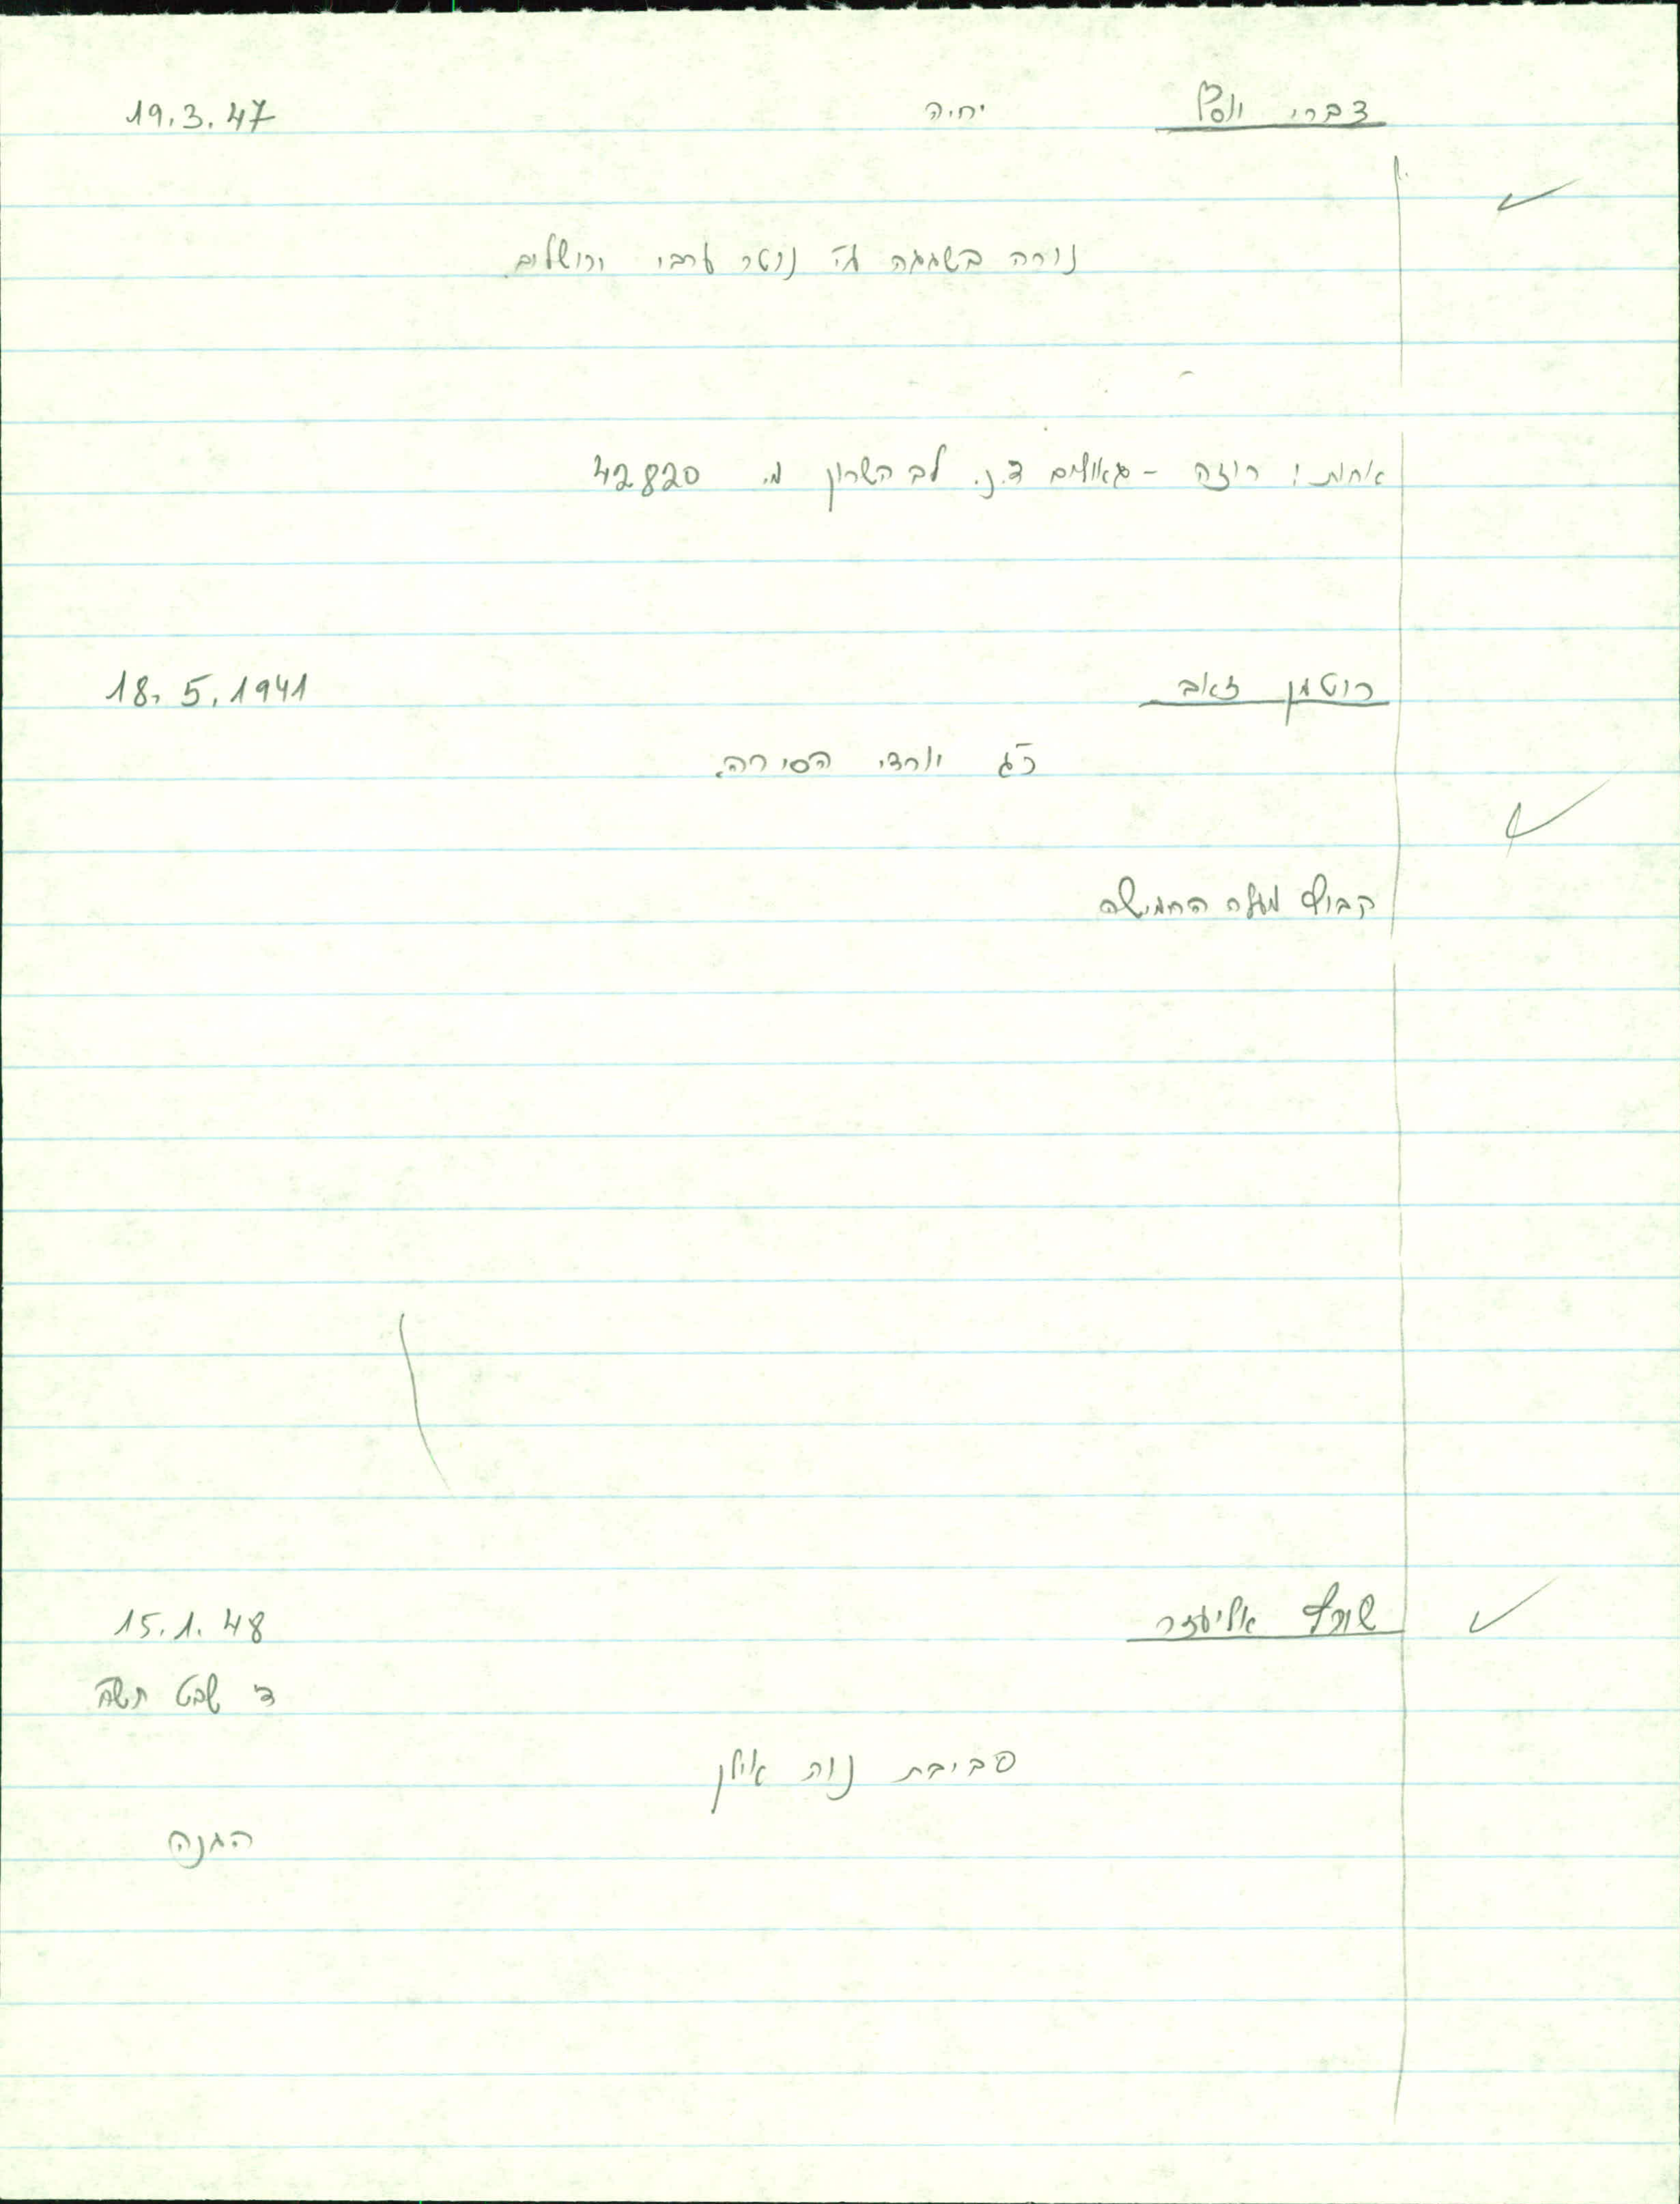 צברי יוסף יחיה 19.3.47
נורה בשגגה ע"י נוטר ערבי ירושלים
אחות: רוזה - גאולים ד.נ. לב השרון מ. 42820
רוטמן זאב 18.5.1941
כ"ג יורדי הסירה.
קבוץ מעלה החמישה
שורץ אליעזר 15.1.48
ד' שבט תש"ח
סביבת נוה אילן
הגנה